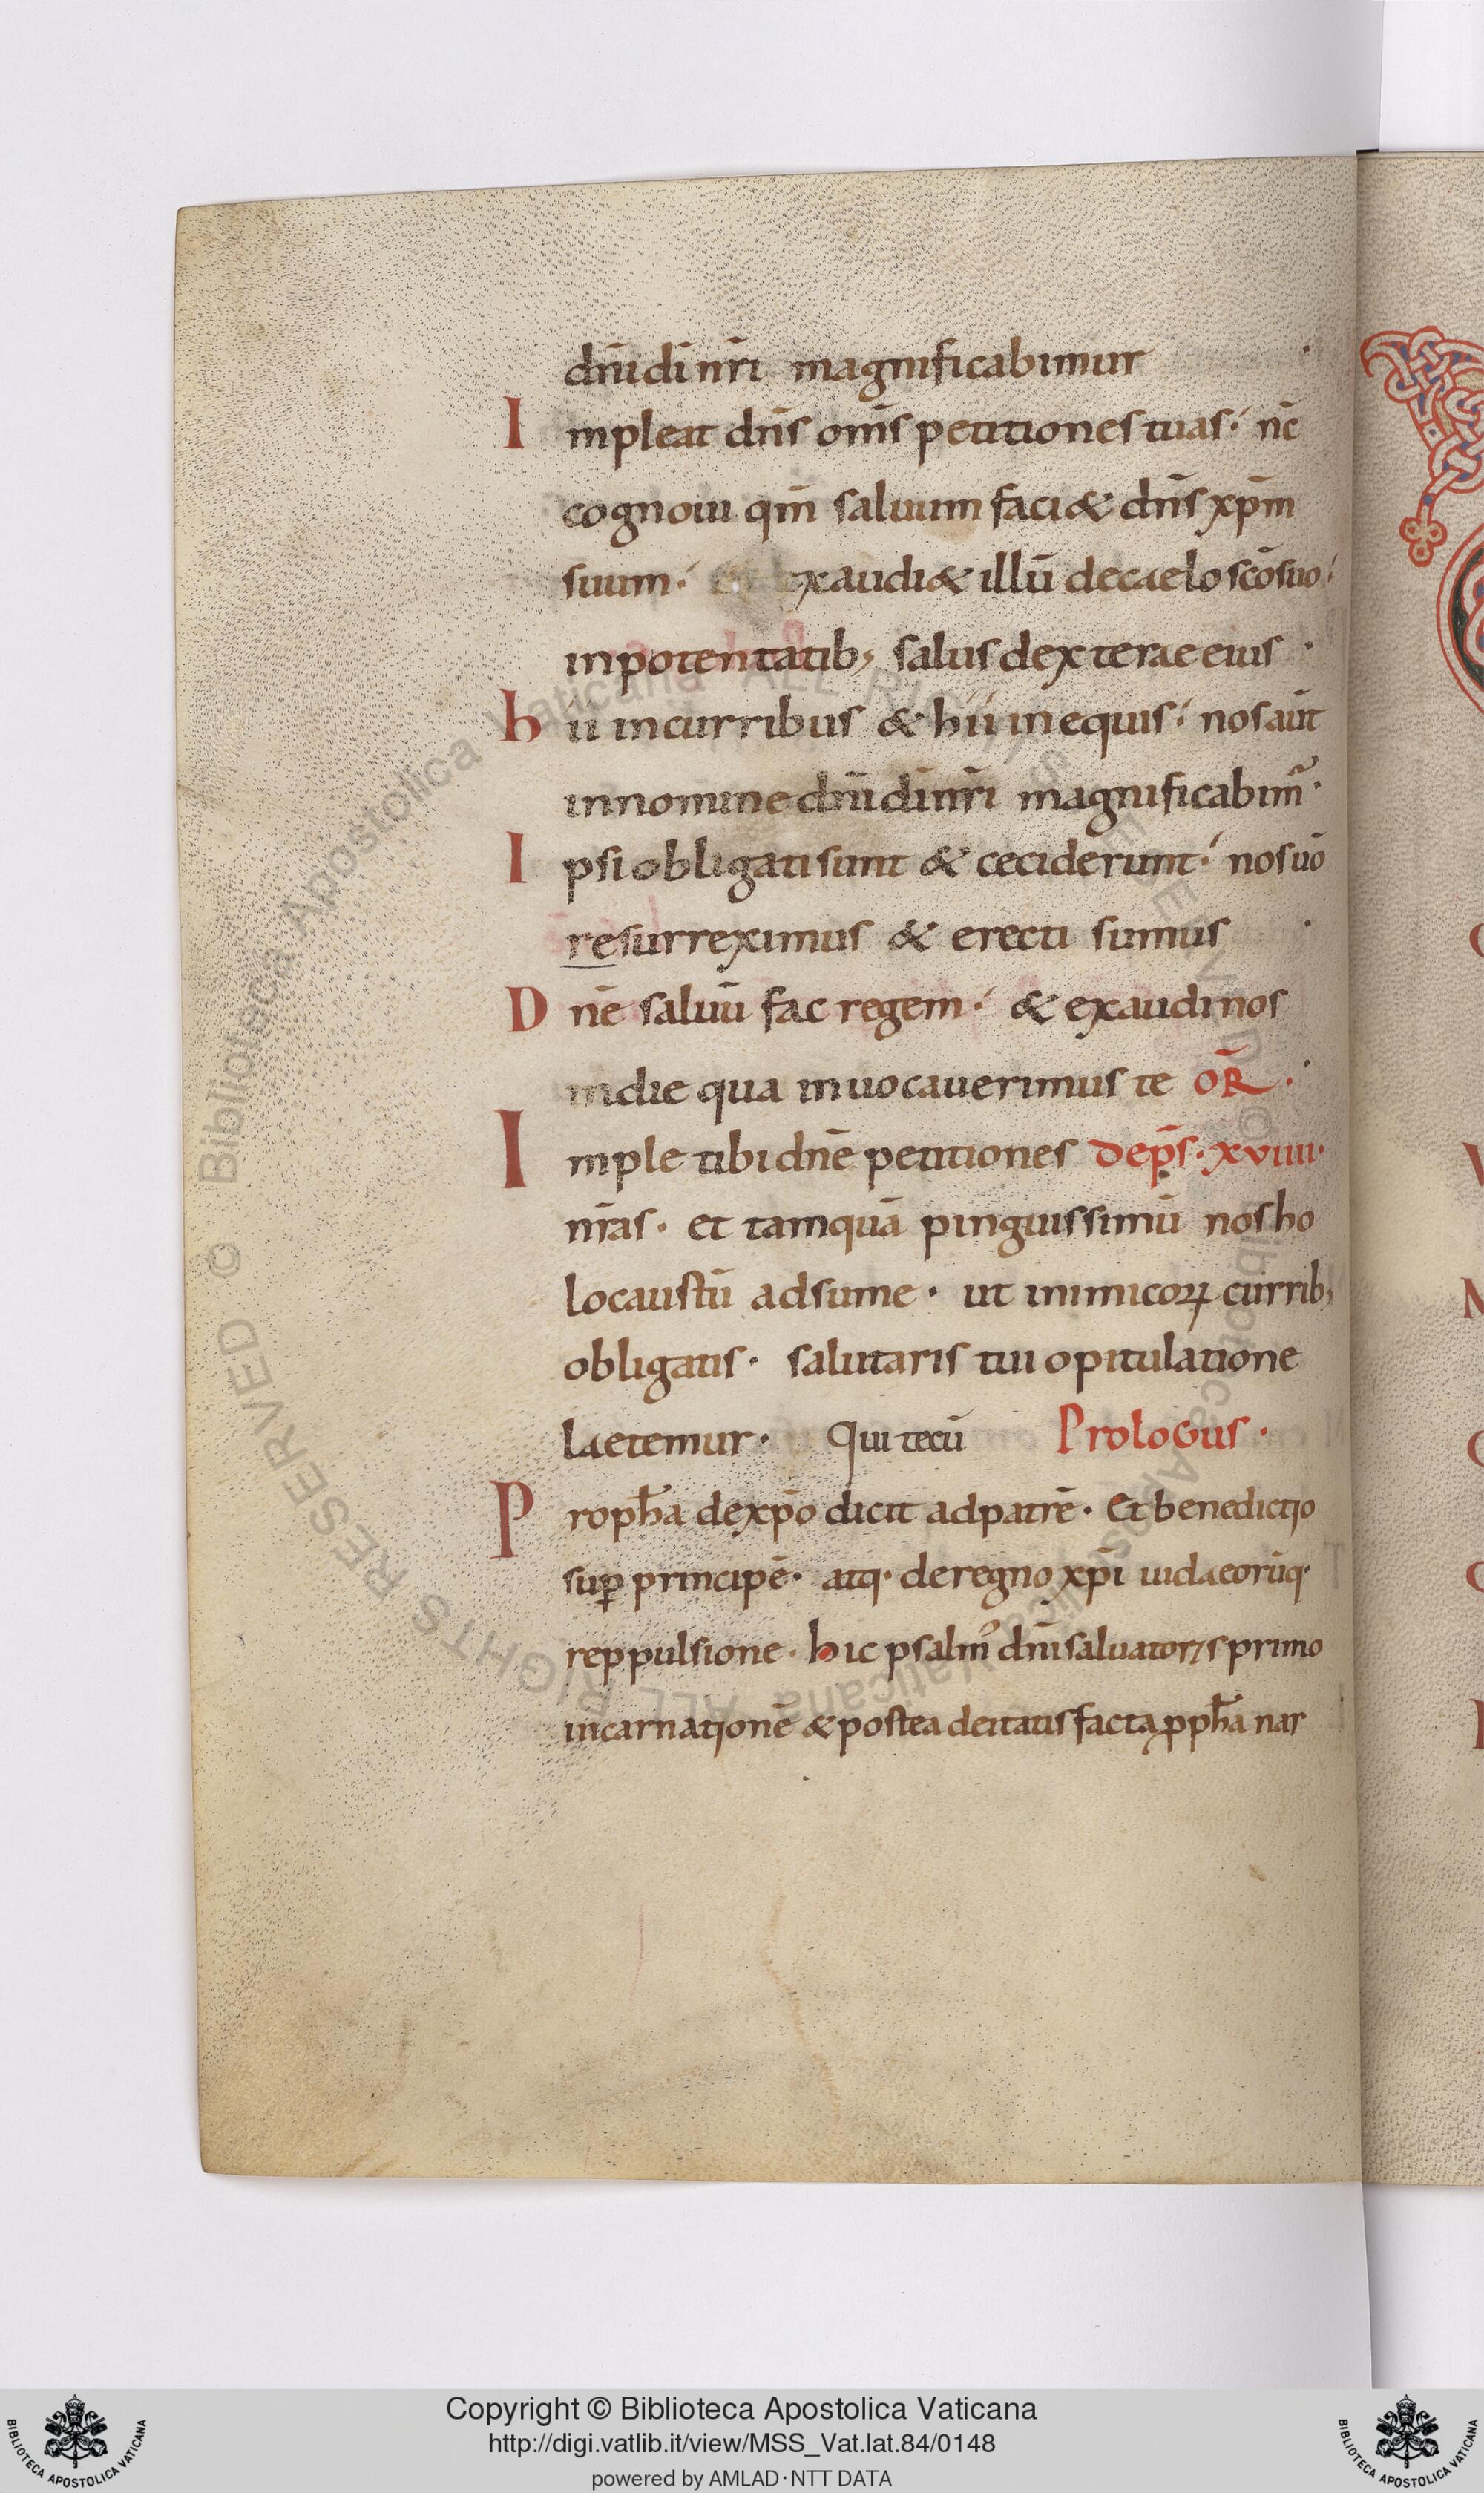 dn̄i di nr̄i magnificabimur
Impleat dn̄s om̄s petitiones tuas· nc̄
cognoui qm̄ saluum faci& dn̄s xp̄m
suum· exaudi& illū de caelo sc̄o suo
in potentatib; salus dexterae eius ·
hii in curribus & hii in equis· nos aūt
in nomine dn̄i di nr̄i magnificabim̃·
Ipsi obligati sunt & ceciderunt· nos uō
resurreximus & erecti sumus ·
Dnē saluū fac regem· & exaudi nos
in die qua inuocauerimus te OR̄·
Imple tibi dnē petitiones de ps̄· xviiii·
nr̄as· et tamquā pinguissimū nos ho
locaustū adsume· ut inimicoꝝ currib;
obligatis· salutaris tui opitulatione
laetemur· Qui tecū ProloGus·
Proph̄a de xp̄o dicit ad patrē· Et benedictio
suꝑ principē· atq· de regno xp̄i iudaeorūq·
reppulsione· hic psalm᾿ dn̄i saluatoris primo
incarnationē & postea deitatis facta ꝓph̄a nar
Copyright © Biblioteca Apostolica Vaticana
http://digi.vatlib.it/view/MSS_Vat.lat.84/0148
powered by AMLAD·NTT DATA
BIBLIOTECA APOSTOLICA VATICANA
BIBLIOTECA APOSTOLICA VATICANA